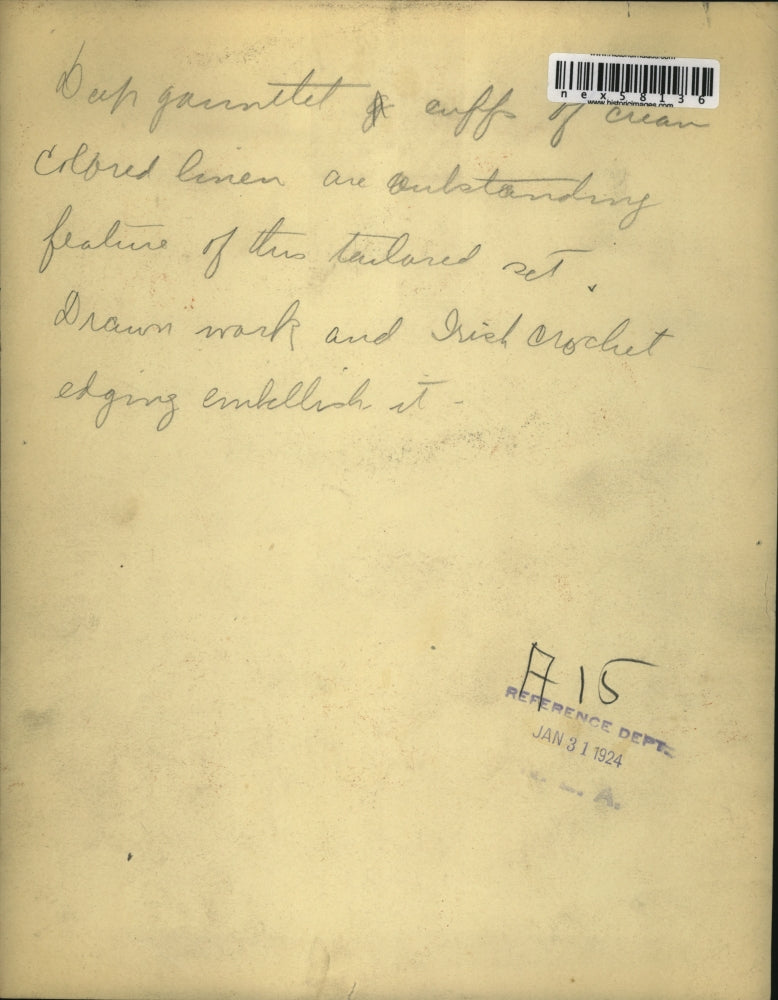 nex58136
www.historicimages.com
Deep gauntlet cuffs of cream
colored linen are outstanding
feature of this tailored set.
Drawn work and Irish crochet
edging embellish it -
A 15
REFERENCE DEPT.
JAN 31 1924
E. A.